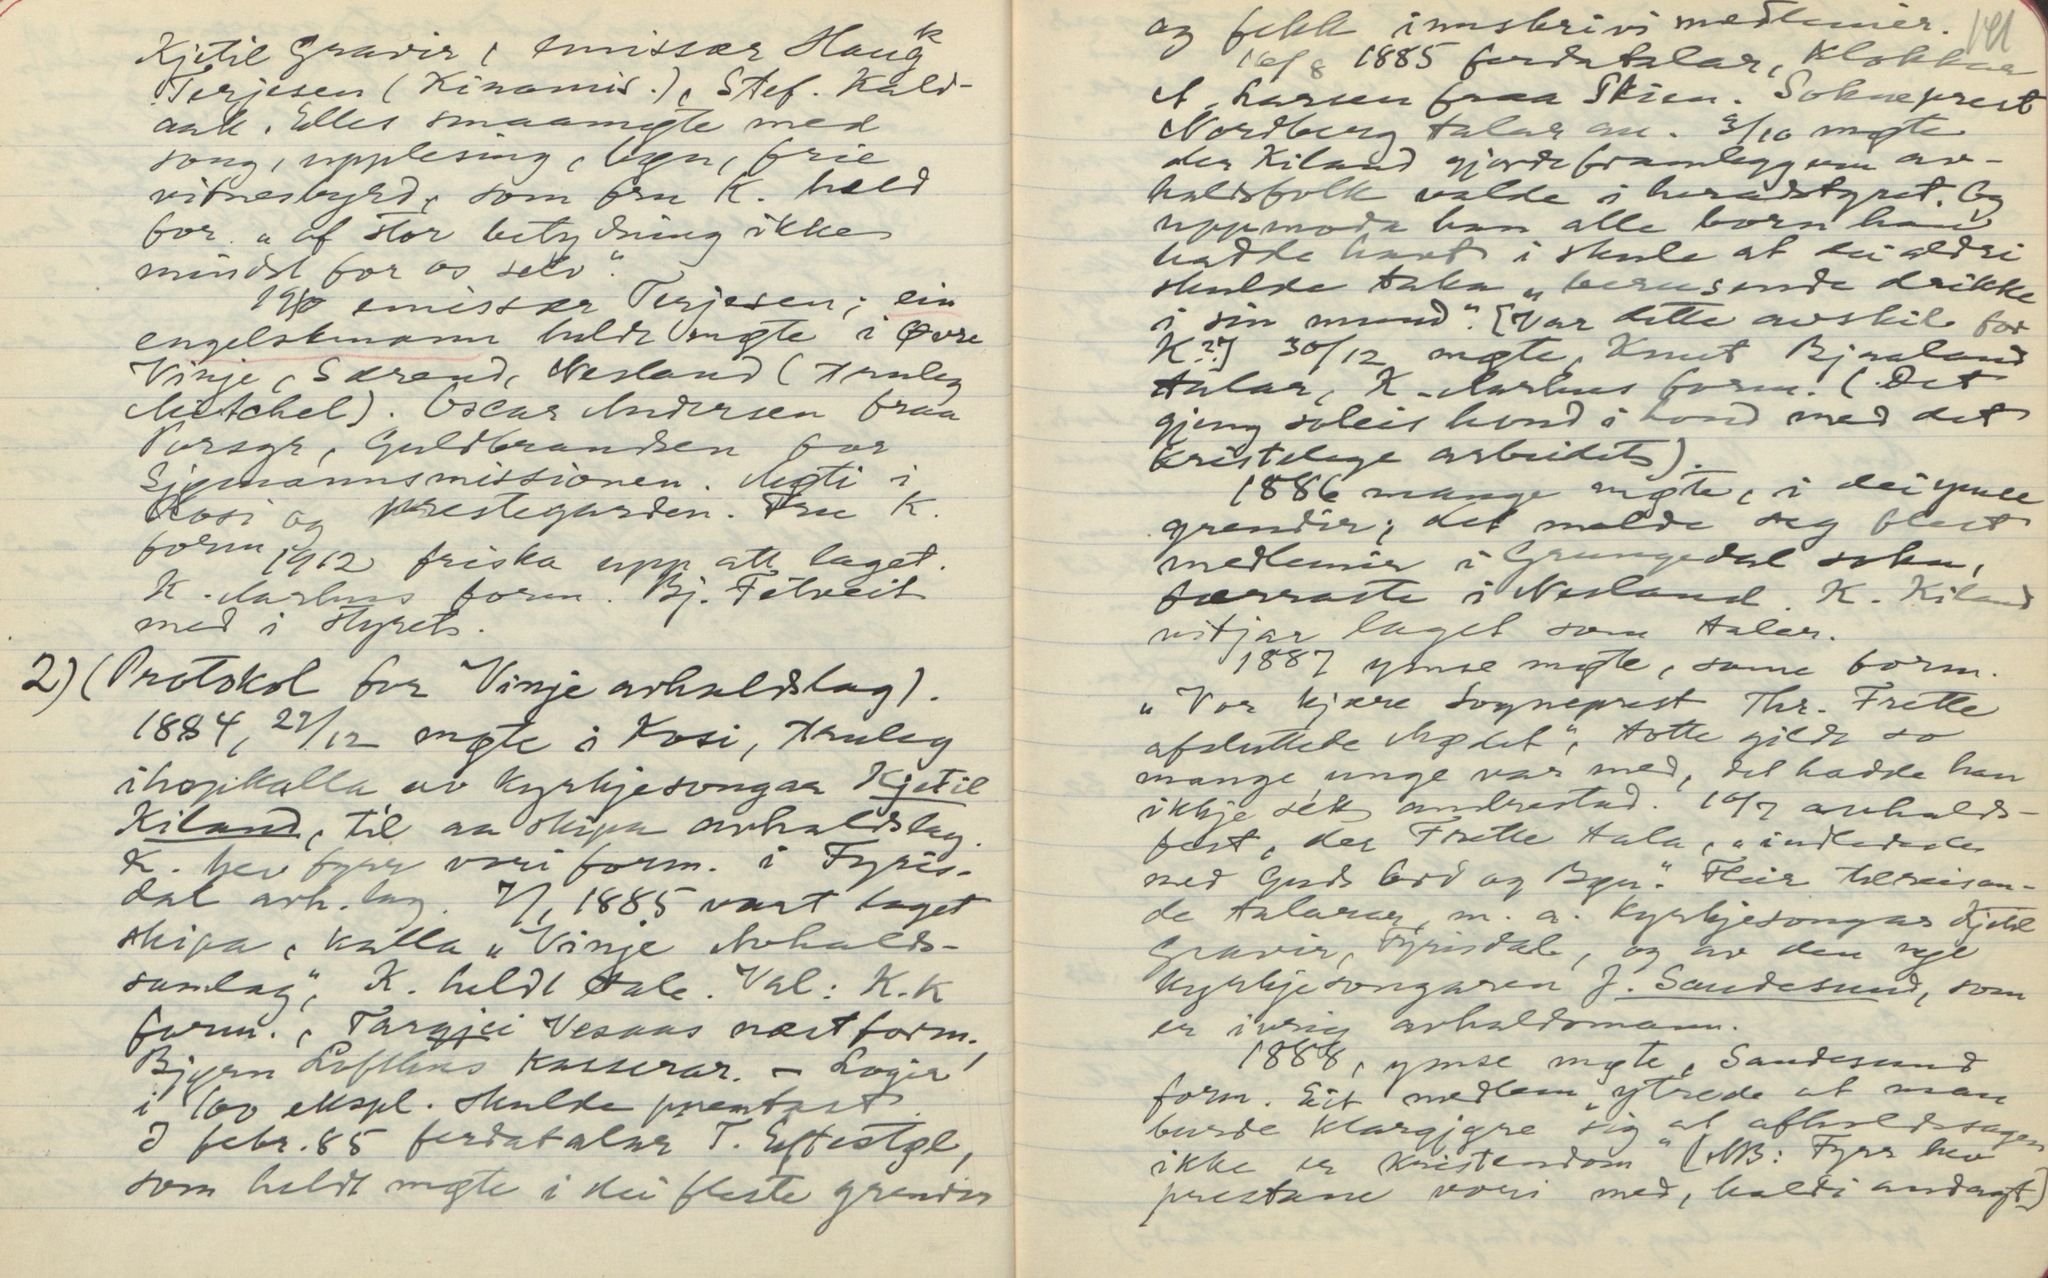 Kjetil Gravir, emissær Haugk
Terjesen (Kinamis.), Stef. Kald-
aak. Elles smaamøte med
song, upplesing, bøn, frie
vitnesbyrd, som fru K. held
for "af stor betydning ikke
mindst for os selv".
1910 emissær Terjesen; ein
engelskmann heldt møte i Øvre
Vinje, Særend, Nesland (truleg
Mitchel). Oscar Andersen fraa
Porsgr, Guldbrandsen for
Sjømannsmissionen. Møti i
Kosi og prestegarden. Fru K.
form.
1912 friska upp att laget.
K. Aarhus form. Bj. Felveit
med i styret.
2) (Protokol for Vinje avhaldslag).
1884, 27/12 møte i Kosi, truleg
ihopkalla av kyrkjesongar Kjetil
Kiland, til aa skipa avhaldslag.
K. hev fyrr vori form. i Fyris-
dal avh. lag. 7/1 1885 vart laget
skipa, kalla "Vinje Avholds-
samlag", K. heldt tale. Val: K.K
form., Targjei Vesaas næstform.,
Bjørn Lofthus kasserar. – Logir
i 100 ekspl. skulde prentast.
I febr. 85 ferdatalar T. Eftestøl,
som heldt møte i dei fleste grendir
og fekk innskrivi medlemir.
141
16/8 1885 ferdatalar, klokkar
A. Larsen fraa Skien. Sokneprest
Nordberg talar au. 3/10 møte
der Kiland gjorde framlegg um av-
haldsfolk valde i heradstyret. Og
uppmoda han alle born han
hadde havt i skule at dei aldri
skulde taka "berusende drikke
i sin mund". [Var dette avskil for
K??] 30/12 møte, Knut Bjaaland
talar, K. Aarhus form. (Det
gjeng soleis hond i hond med det
kristelege arbeidet).
1886 mange møte, i dei ymse
grendir; det melde seg flest
medlemir i Grungedal sokn,
færraste i Nesland. K. Kiland
vitjar laget som talar.
1887 ymse møte, same form.
"Vor kjære Sogneprest Thr. Frette
afsluttede Mødet", totte gildt so
mange unge var med, det hadde han
ikkje sétt andrestad. 10/7 avhalds-
fest, der Frette tala, "indledede
med Guds Ord og Bøn". Fleir tilreisan-
de talarar, m. a. kyrkjesongar Kjetil
Gravir, Fyrisdal, og av den nye
kyrkjesongaren J. Sandesund, som
er ivrig avhaldsmann.
1888, ymse møte, Sandesund
form. Eit medlem "ytrede at man
burde klargjøre sig at afholdssagen
ikke er kristendom" [NB: Fyrr hev
prestane vori med, haldi andagt]